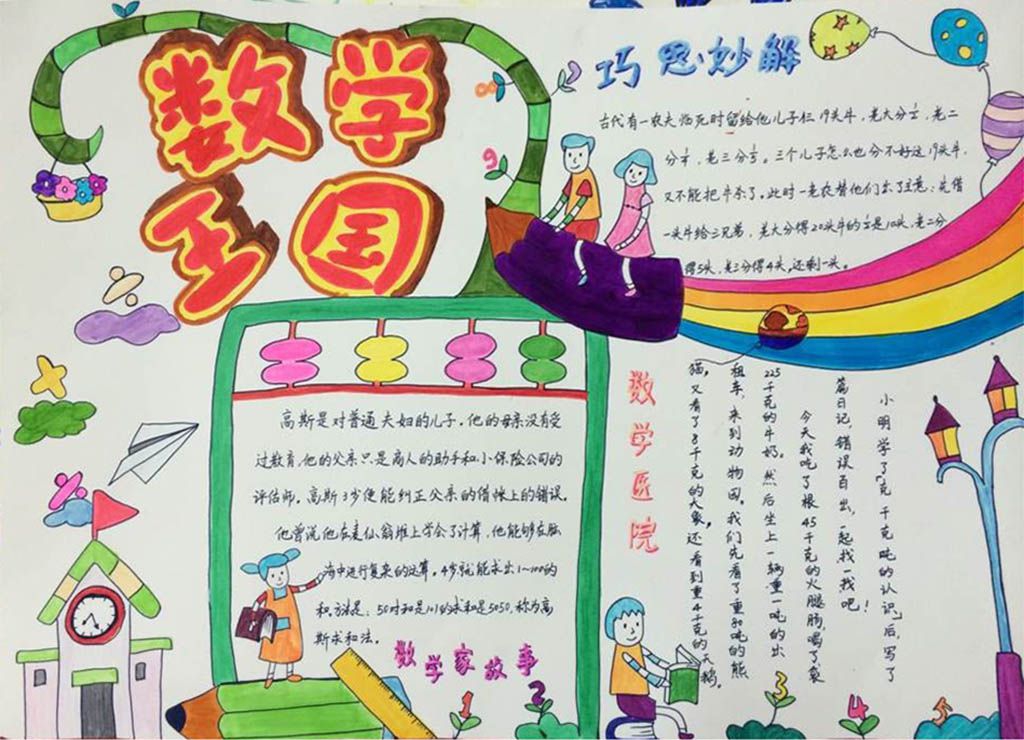 数学
王国
巧思妙解
古代有一农夫临死时留给他儿子仨19头牛,老大分½,老二
分¼,老三分⅕。三个儿子怎么也分不好这19头牛,
又不能把牛杀了。此时一老农替他们出了主意:先借
一头牛给三兄弟,老大分得20头牛的½是10头,老二分
得5头,老三分得4头,还剩一头。
9
8
高斯是对普通夫妇的儿子。他的母亲没有受
过教育,他的父亲只是商人的助手和小保险公司的
评估师。高斯3岁便能纠正父亲的借帐上的错误。
他曾说他在麦仙翁堆上学会了计算,他能够在脑
海中进行复杂的运算。4岁就能求出1~100的
和。方法是:50对和是101的求和是5050,称为高
斯求和法。
数学家故事
数学医院
小明学了"克千克吨的认识"后,写了
篇日记,错误百出,一起找一找吧!
今天我吃了根45千克的火腿肠,喝了袋
225千克的牛奶。然后坐上一辆重一吨的出
租车,来到动物园。我们先看了重90吨的熊
猫,又看了8千克的大象,还看到重4千克的天鹅。
1
2
3
4
5